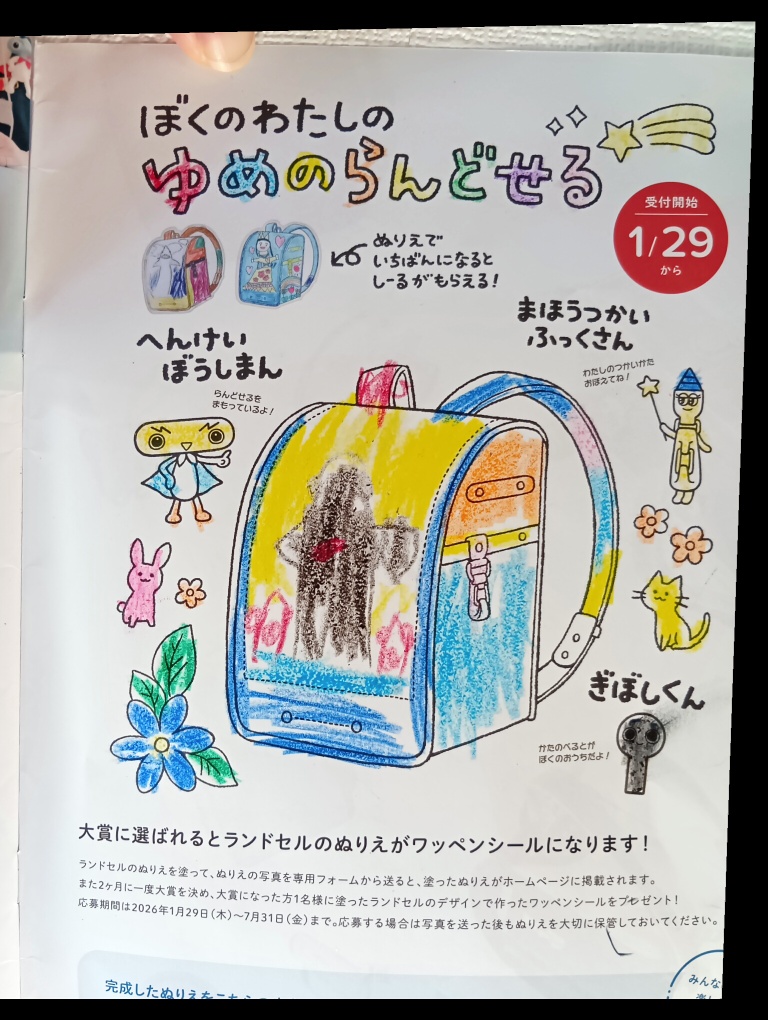 ぼくのわたしの
ゆめのらんどせる
受付開始
1/29
から
ぬりえで
いちばんになると
しーるがもらえる!
まほうつかい
ふっくさん
わたしのつかいかた
おぼえてね!
へんけい
ぼうしまん
らんどせるを
まもっているよ!
ぎぼしくん
かたのべるとが
ぼくのおうちだよ!
大賞に選ばれるとランドセルのぬりえがワッペンシールになります!
ランドセルのぬりえを塗って、ぬりえの写真を専用フォームから送ると、塗ったぬりえがホームページに掲載されます。
また2ヶ月に一度大賞を決め、大賞になった方1名様に塗ったランドセルのデザインで作ったワッペンシールをプレゼント!
応募期間は2026年1月29日(木)〜7月31日(金)まで。応募する場合は写真を送った後もぬりえを大切に保管しておいてください。
みんな
完成したぬりえをこちらの